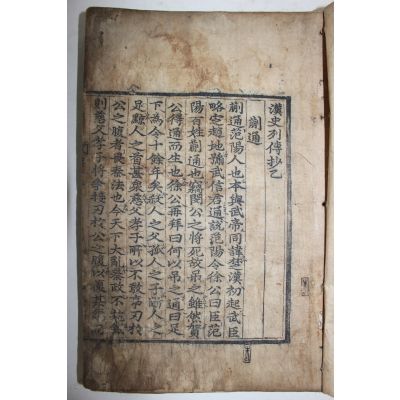 漢史列傳抄乙
蒯通
蒯通范陽人也本與武帝同諱楚漢初起武臣
略定趙地號武信君通說范陽令徐公曰臣范
陽百姓蒯通也竊閔公之將死故吊之雖然賀
公得通而生也徐公再拜曰何以吊之通曰足
下為令十餘年矣殺人之父孤人之子斷人之
足黥人之首甚衆慈父孝子所以不敢事刃於
公之腹者畏秦法也今天下大亂秦政不施然
則慈父孝子將爭接刃於公之腹以復其